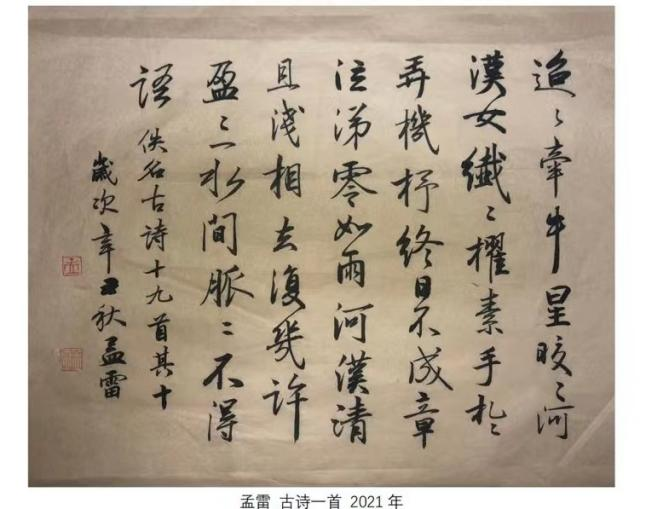 迢〻牵牛星皎〻河
漢女纖〻擢素手札〻
弄機杼終日不成章
泣涕零如雨河漢清
且淺相去復幾許
盈〻一水間脈〻不得
語 佚名古诗十九首其十
歲次辛丑秋孟雷
孟雷 古诗一首 2021 年